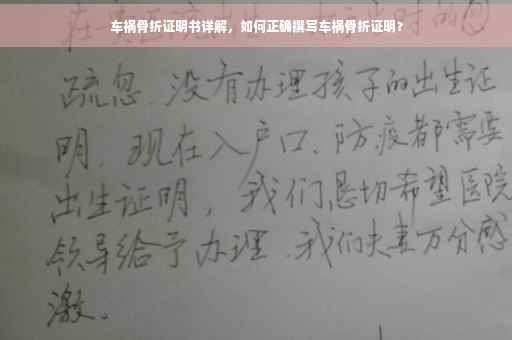 车祸骨折证明书详解，如何正确撰写车祸骨折证明？
时的
疏忽、没有办理孩子的出生证
明. 现在入户口、防疫都需要
出生证明，我们恳切希望医院
领导给予办理.我们夫妻万分感
激。